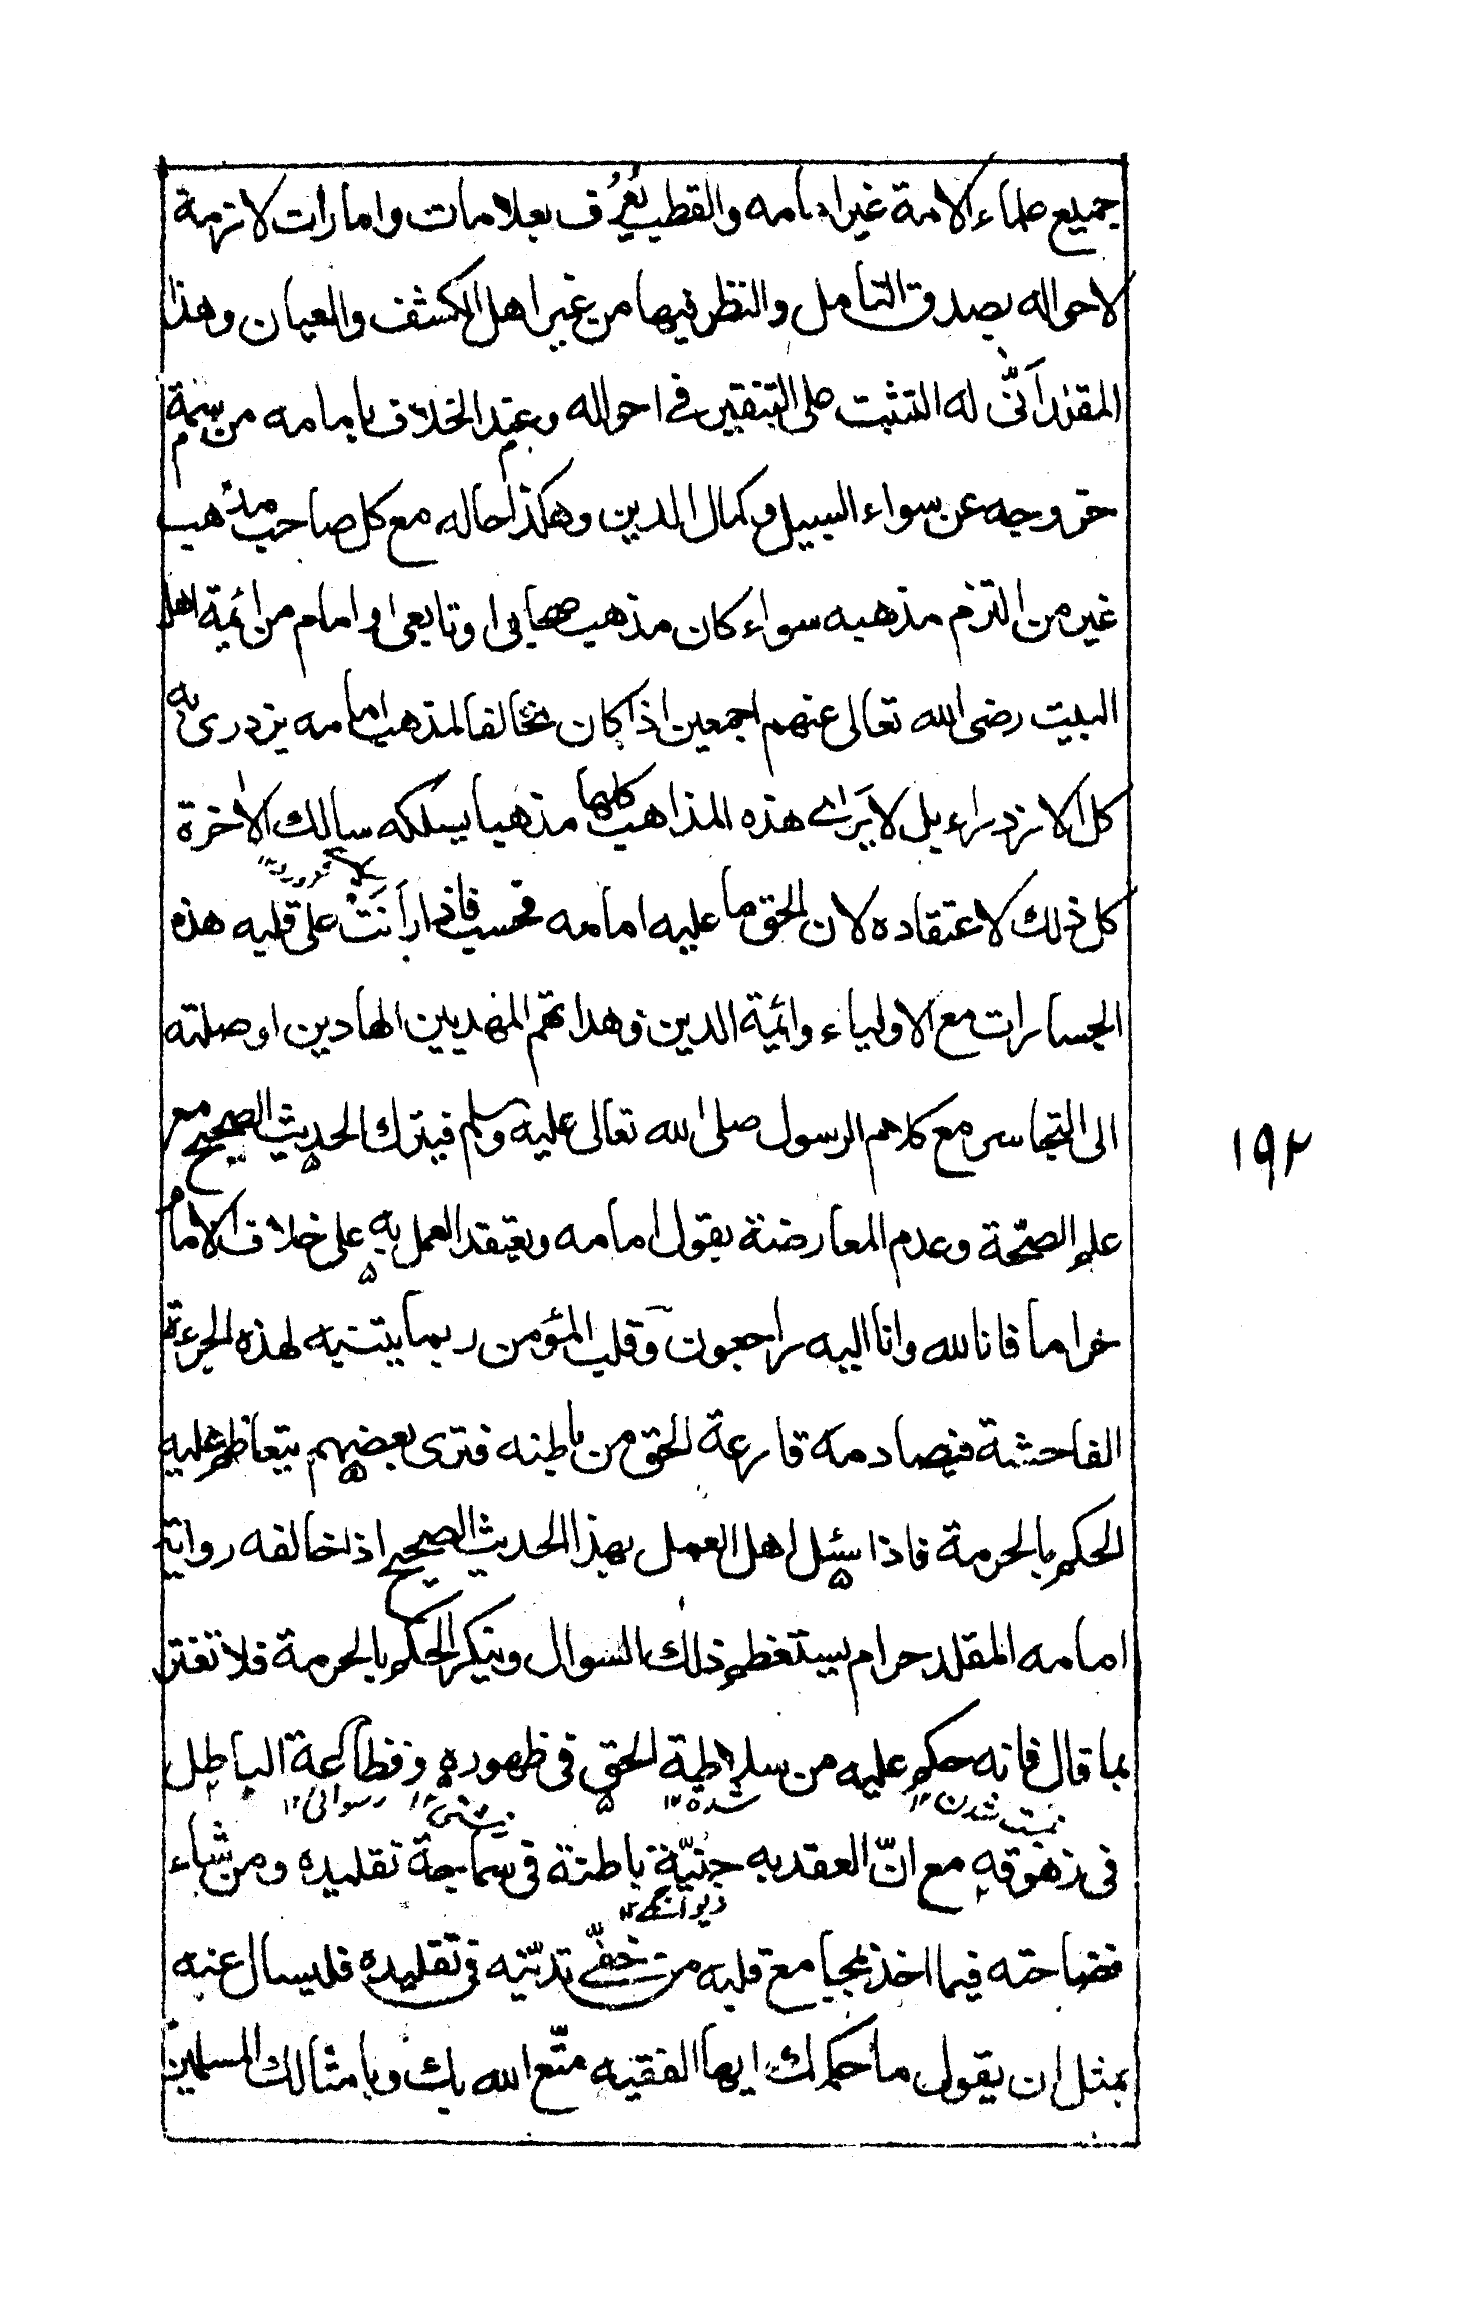 جميع علماء الامة غير امامه والقطب يُعرَف بعلامات وامارات لازمة
لاحواله بصدق التامل والنظر فيها من غير اهل الكشف والعيان وهذا
المقلد اَنّى له التثبت على التنقير فى احواله وعند الخلاف بامامه من سمة
خروجه عن سواء السبيل وكمال الدين وهكذا حاله مع كل صاحب مذهب
غير من التزم مذهبه سواء كان مذهب صحابى او تابعى او امام من ائمة اهل
البيت رضى الله تعالى عنهم اجمعين اذا كان مخالفا لمذهب امامه يزدرى به
كل الازدراء بل لا يَراى هذه المذاهب كلها مذهبا يسلكه سالك الاخرة
كل ذلك لاعتقاده لان الحق ما عليه امامه فحسب فاذا رَانَتْ على قلبه هذه
الجسارات مع الاولياء وائمة الدين وهداتهم المهديين الهادين اوصلته
الى التجاسر مع كلام الرسول صلى الله تعالى عليه وسلم فيترك الحديث الصحيح مع
علم الصحّة وعدم المعارضة بقول امامه ويعتقد العمل به على خلاف الامام
حراما فانا لله وانا اليه راجعون وقلب المؤمن ربما يتنبه لهذه الجرءة
الفاحشة فيصادمه قارعة الحق من باطنه فترى بعضهم يتعاظم عليه
الحكم بالحرمة فاذا سئل اهل العمل بهذا الحديث الصحيح اذا خالفه رواية
امامه المقلد حرام يستعظم ذلك السوال وينكر الحكم بالحرمة فلا تغتر
بما قال فانه حكم عليه من سلاطة الحق فى ظهوره وفظاعة الباطل
نيست شدن ١٢ شده ١٢ زشتى ١٢ رسوائى ١٢
فى زهوقه مع انّ العقد به جنيّة باطنة فى سماجة تقليده ومن شاء
ديوانگے ١٢
فضاحته فيما اخذ بمجامع قلبه من خفّى تديّنه فى تقليده فليسال عنه
بمثل ان يقول ما حكم لك ايها الفقيه متّع الله بك وبامثالك المسلمين
١٩٢